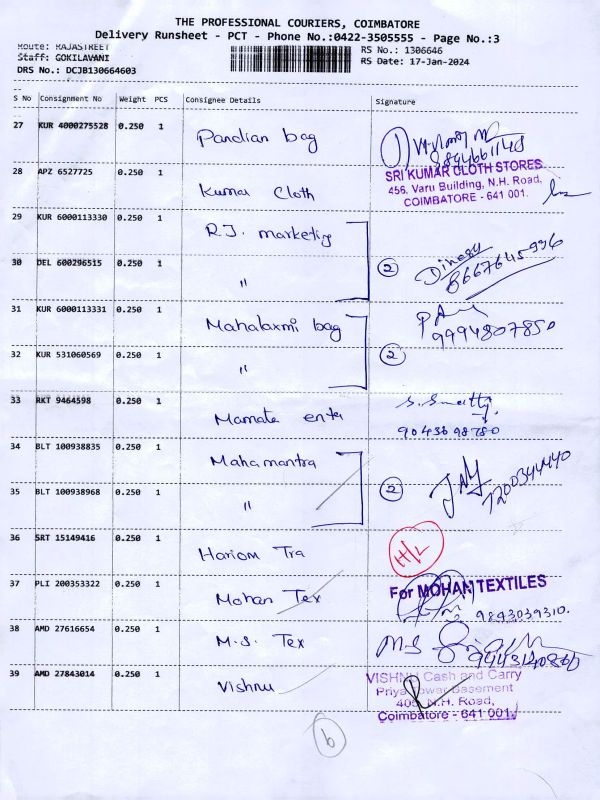 THE PROFESSIONAL COURIERS, COIMBATORE
Delivery Runsheet - PCT - Phone No.:0422-3505555 - Page No.:3
Route: RAJASTREET
Staff: GOKILAVANI
DRS No.: DCJB130664603
RS No.: 1306646
RS Date: 17-Jan-2024
S No Consignment No Weight PCS Consignee Details Signature
27 KUR 4000275528 0.250 1 Pandian bag
9894661148
28 APZ 6527725 0.250 1 Kumar Cloth
SRI KUMAR CLOTH STORES
456, Varu Building, N.H. Road,
COIMBATORE - 641 001.
29 KUR 6000113330 0.250 1 R.J. marketing
30 DEL 600296515 0.250 1 "
2 Dinesh
8667645996
31 KUR 6000113331 0.250 1 Mahalaxmi bag
9994807850
32 KUR 531060569 0.250 1 "
2
33 RKT 9464598 0.250 1 Mamata ente
9043698780
34 BLT 100938835 0.250 1 Mahamantra
35 BLT 100938968 0.250 1 "
2
7200344440
36 SRT 15149416 0.250 1 Hariom Tra
H/L
37 PLI 200353322 0.250 1 Mohan Tex
For MOHAN TEXTILES
9843039310.
38 AMD 27616654 0.250 1 M.S. Tex
M.S
39 AMD 27843014 0.250 1 Vishnu
VISHNU Cash and Carry
Priya Tower Basement
405, N.H. Road,
Coimbatore - 641 001.